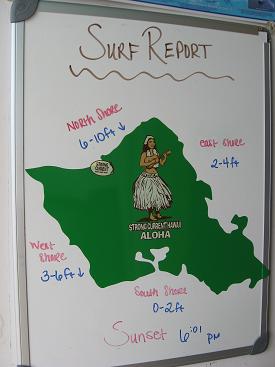 SURF REPORT
North Shore
6-10ft ↓
East Shore
2-4ft
STRONG CURRENT
STRONG CURRENT HAWAII
ALOHA
West
Shore
3-6ft ↓
South Shore
0-2ft
Sunset 6:01 PM